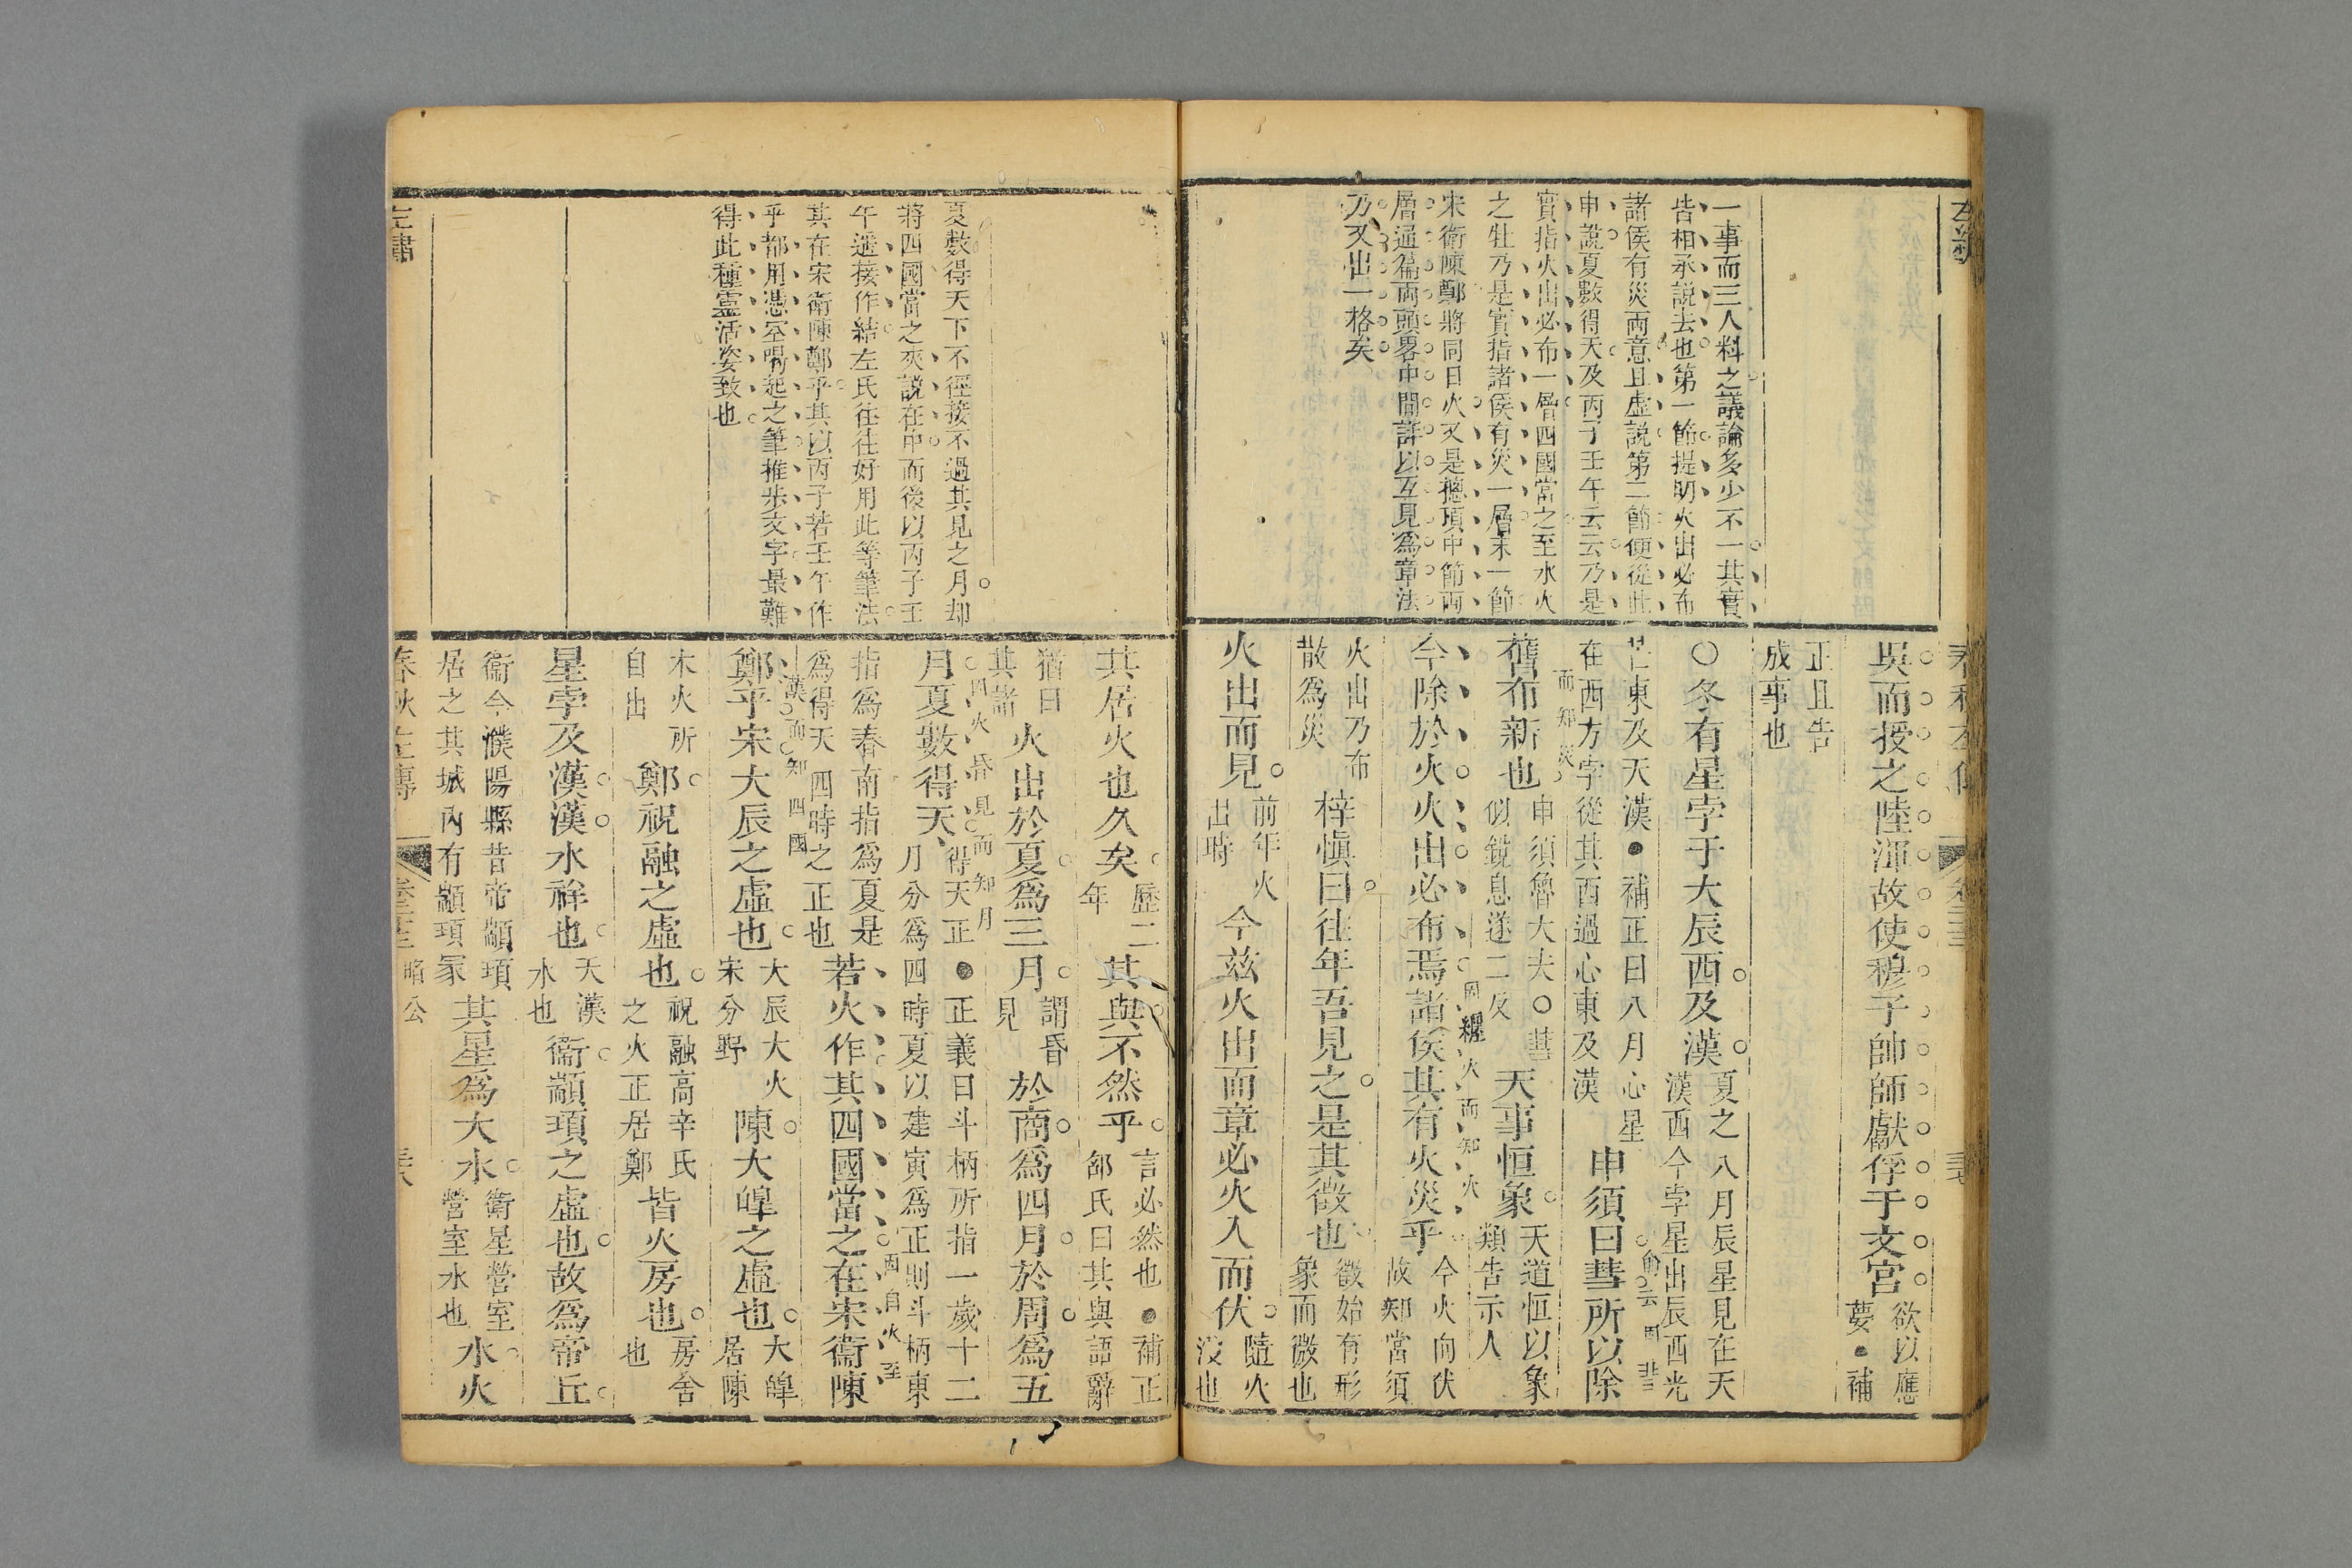 一事而三人料之議論多少不一其實
皆相承說去也第一節提明火出必布
諸侯有災兩意且虛說第二節便從此
申說夏數得天及丙子壬午云云乃是
實指火出必布一層四國當之至水火
之牡乃是實指諸侯有災一層末一節
宋衛陳鄭將同日火又是總頂中節兩
層通篇兩頭畧中間詳以互見爲章法
乃又出一格矣
吳而授之陸渾故使穆子帥師獻俘于文宮
欲以應
夢●補
正且告
成事也
○冬有星孛于大辰西及漢
夏之八月辰星見在天
漢西今孛星出辰西光
芒東及天漢●補正曰八月心星
在西方孛從其西過心東及漢
申須曰彗所以除
舊布新也
申須魯大夫○彗
似鏡息遂二反
天事恒象
天道恒以象
類告示人
今除於火火出必布焉諸侯其有火災乎
今火向伏
故知當須
火出乃布
散爲災
梓愼曰往年吾見之是其徵也
徵始有形
象而微也
火出而見
前年火
出時
今兹火出而章必火入而伏
隨火
沒也
夏數得天下不徑接不過其見之月却
將四國當之夾說在中而後以丙子壬
午遥接作結左氏往往好用此等筆法
其在宋衛陳鄭乎其以丙子若壬午作
乎都用憑空喝起之筆推步文字最難
得此種靈活姿致也
其居火也久矣
歷二
年
其與不然乎
言必然也●補正
邵氏曰其與語辭
猶曰
其諸
火出於夏爲三月
謂昏
見
於商爲四月於周爲五
月夏數得天
得天正●正義曰斗柄所指一歲十二
月分爲四時夏以建寅爲正則斗柄東
指爲春南指爲夏是
爲得天四時之正也
若火作其四國當之在宋衞陳
鄭乎宋大辰之虛也
大辰大火
宋分野
陳大皥之虛也
大皥
居陳
木火所
自出
鄭祝融之虛也
祝融高辛氏
之火正居鄭
皆火房也
房舍
也
星孛及漢漢水祥也
天漢
水也
衞顓頊之虛也故爲帝丘
衞今濮陽縣昔帝顓頊
居之其城內有顓頊冢
其星爲大水
衛星營室
營室水也
水火
左繡
春秋左傳
昭公